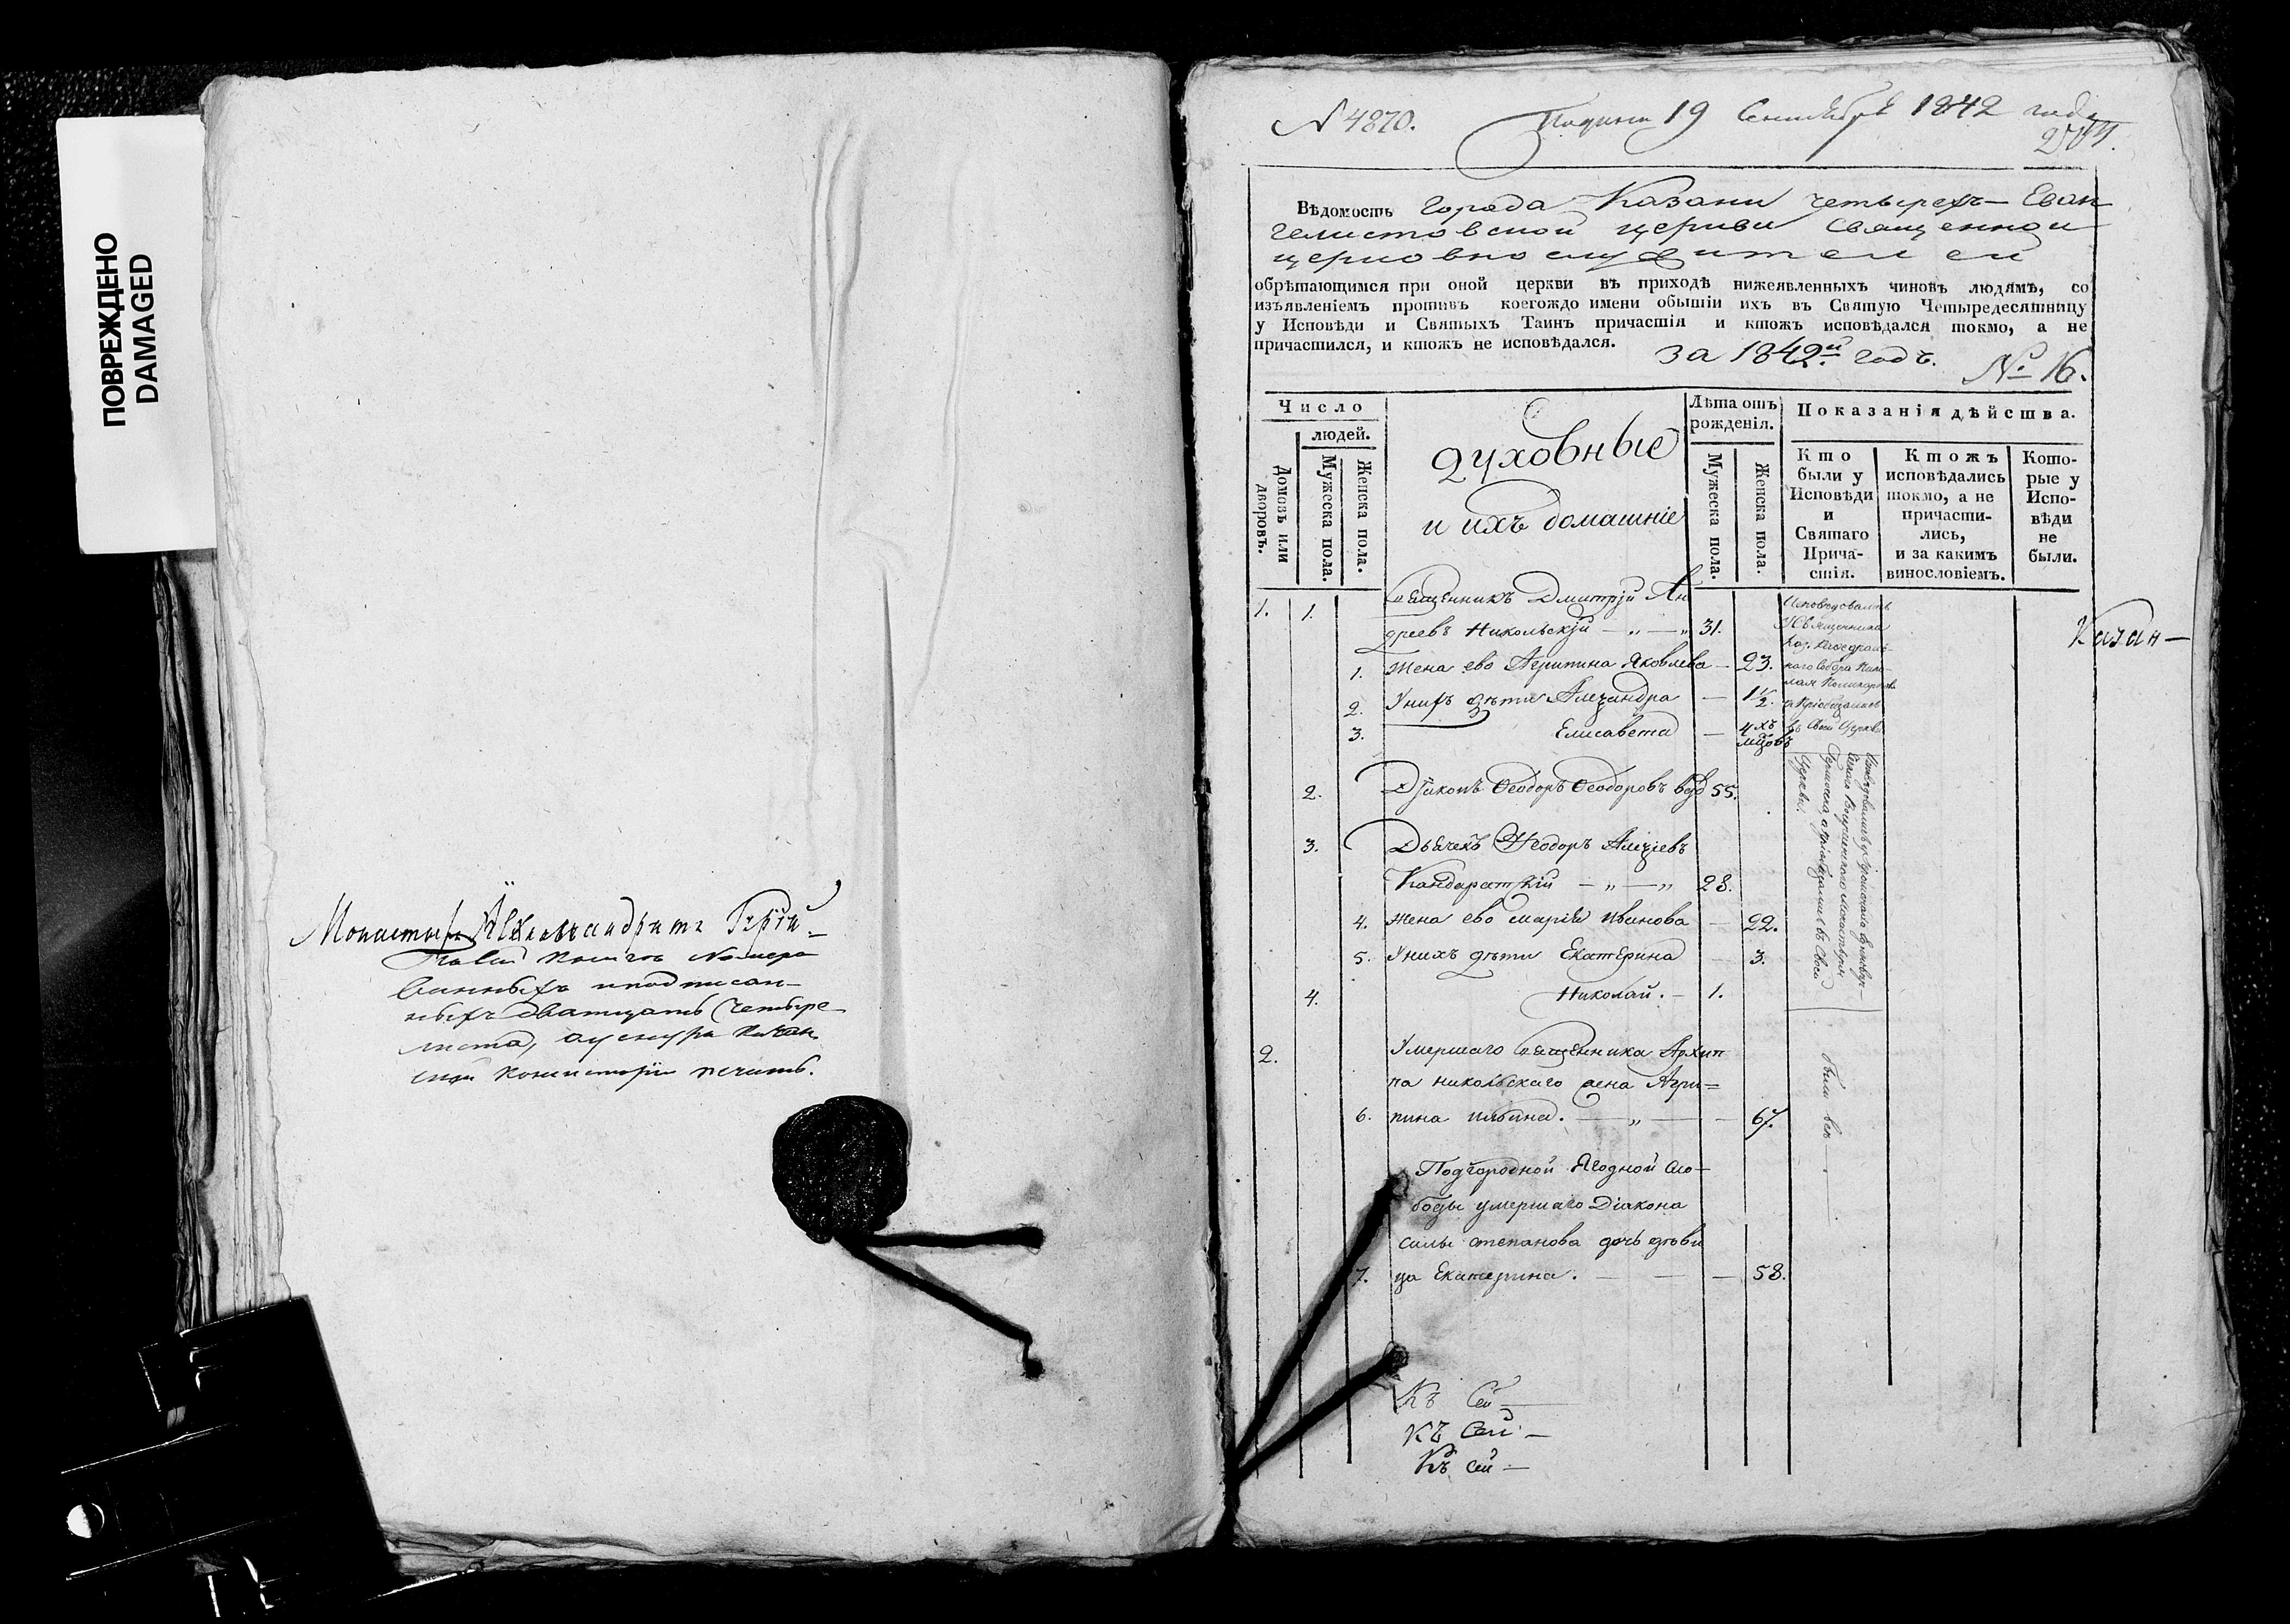 ПОВРЕЖДЕНО
DAMAGED
ванныхъ и подписан-
ныхъ дватцать четыре
листа, а у снура Казан
ской Консисторіи печать.
N 4870.
19 Сентября 1842 года
Вѣдомость Города Казани Четырехъ-Еван
гелистовской церкви Священно и
церковнослужителей
обрѣтающимся при оной церкви въ приходѣ нижеявленныхъ чиновъ людямъ, со
изъявленіемъ противъ коегождо имени обытіи ихъ въ Святую Четыредесятницу
у Исповѣди и Святыхъ Таинъ причастія и ктожъ исповѣдался токмо, а не
причастился, и ктожъ не исповѣдался.
за 1842й годъ.
№ 16.
Число
людей.
Домовъ или дворовъ.
Мужеска пола.
Женска пола.
Духовные
и ихъ домашніе
Лѣта отъ
рожденія.
Мужеска пола.
Женска пола.
Показанія дѣйства.
Кто
были у
Исповѣди
и
Святаго
Прича-
стія.
Ктожъ
исповѣдались
токмо, а не
причасти-
лись,
и за какимъ
винословіемъ.
Кото-
рые у
Испо-
вѣди
не
были.
1. 1. Священникъ Дмитрій Ан
дреевъ Никольскій — „ — „ 31.
1. Жена ево Агрипина Яковлева — 23.
2. У нихъ дѣти Алеѯандра — 1 1/2.
3. Елисавета — 4хъ
мцовъ
Исповѣдовались
у Священника
Каѳедраль-
наго Собора
въ своей Церкви
2. Діаконъ Ѳеодоръ Ѳеодоровъ вдв 55.
3. Дьячекъ Ѳеодоръ Алеѯіевъ
Кандаратскій — „ — „ 28.
4. Жена ево Марія Иванова — 22.
5. У нихъ дѣти Екатерина — 3.
4. Николай. — 1.
2. Умершаго Священника Архип
па Никольскаго жена Агри=
6. пина Ильина. — „ — 67.
были всѣ
Подгородной Ягодной Сло-
боды умершаго Діакона
Силы Степанова дочь дѣви
7. ца Екатерина. — — — 58.
Къ Сей —
Къ Сей —
Къ сей —
Казан—